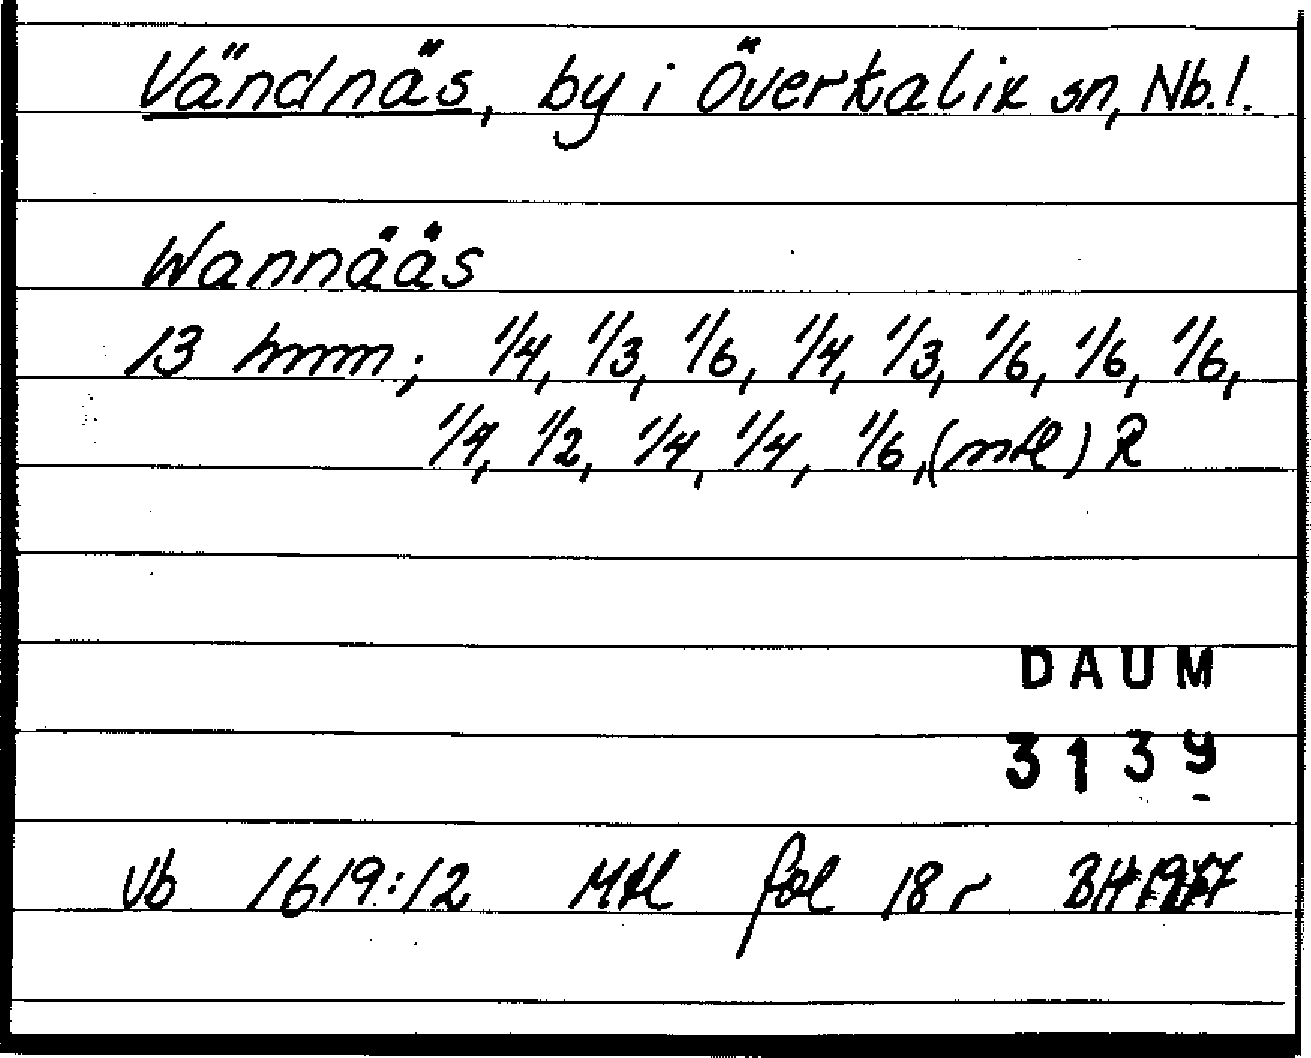 Vändnäs, by i Överkalix sn, Nb.l.
Wannääs
13 hmm; 1/4, 1/3, 1/6, 1/4, 1/3, 1/6, 1/6, 1/6,
1/4, 1/2, 1/4, 1/4, 1/6, (mtl) R
DAUM
3139
Vb 1619:12 Mtl fol 18 r